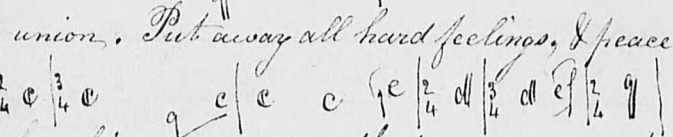 union. Put away all hard feelings, & peace
2/4 e | 3/4 e g e | e e g e | 2/4 d | 3/4 d e f | 2/4 g |